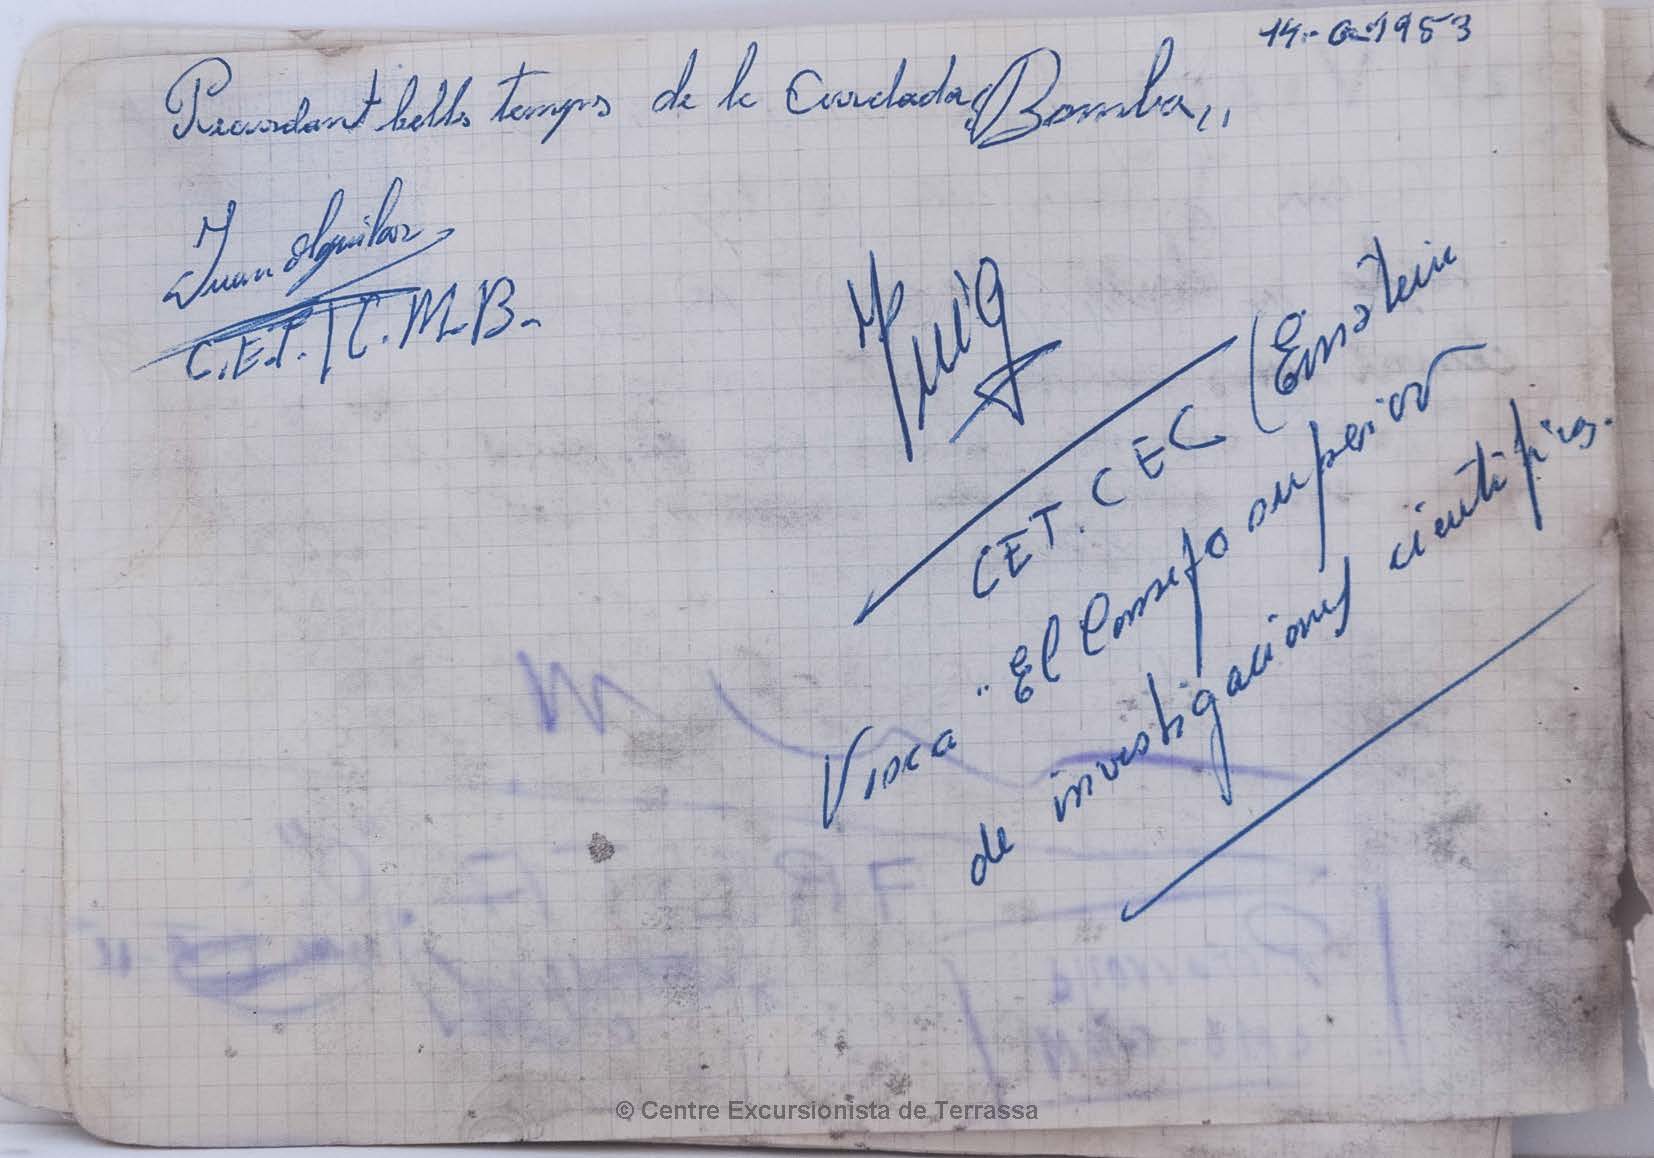 14-6-1953
Recordant bells temps de la Cordada "Bomba"
Juan Aguilar
C.E.T. / C.M.B.
Puig
CET. CEC (Einstein
Visca "El Consejo superior
de investigaciones científicas.
© Centre Excursionista de Terrassa